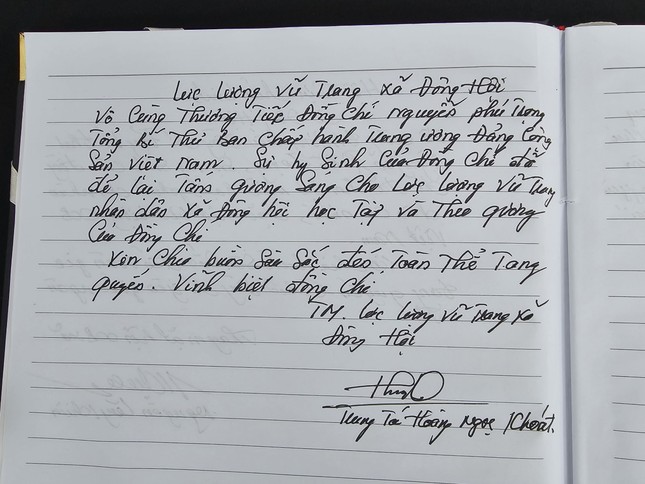 Lực Lượng Vũ Trang Xã Đông Hội
Vô Cùng Thương Tiếc Đồng Chí Nguyễn Phú Trọng
Tổng Bí Thư Ban Chấp hành Trung ương Đảng Cộng
Sản Việt Nam. Sự hy Sinh Của Đồng Chí đã
để lại Tấm gương Sáng Cho Lực Lượng Vũ Trang
nhân dân Xã Đông hội học Tập và Theo gương
Của Đồng Chí
Xin Chia buồn Sâu Sắc đến Toàn Thể Tang
quyến. Vĩnh biệt đồng Chí
TM. Lực Lượng Vũ Trang Xã
Đông Hội
Trung Tá Hoàng Ngọc Khoát.